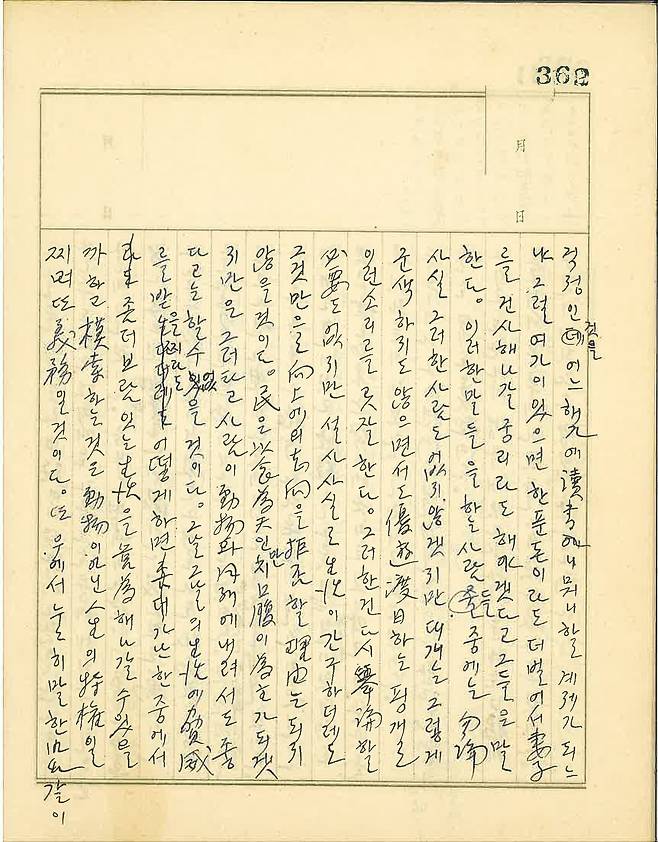 362
月
日
걱정인데 것을 어느 해가에 讀書이나 뭐니 할 계제가 되느
냐 그럴 여가가 있으면 한푼 돈이라도 더 벌어서 妻子
를 건사해나갈 궁리라도 해야겠다고 그들은 말
한다。이러한 말들을 하는 사람들 중에는 勿論
사실 그러한 사람도 없지 않겠지만 대개는 그렇게
군색하지도 않으면서도 優遊渡日하는 핑계로
이런 소리를 곳잘 한다。그러한건 다시 擧論할
必要도 없지만 설사 사실로 生活이 간구하더래도
그것만으로 向上에의 志向을 拒否할 理由는 되지
않을 것이다。民은 以食為天인지만 口腹이 為主가 되겠
지만은 그러타고 사람이 動物와 同列에 내려서도 좋
다고는 할 수 없을 것이다。그날그날의 生活에 脅威
를 받을지라도 어떻게 하면 가난한 중에서
좀 더 보람있는 生活을 営為해 나갈 수 있을
까 하고 模索하는 것은 動物 아닌 人生의 特権일
찌며 또 義務일 것이다。또 우에서 눈히 말한 바와 같이